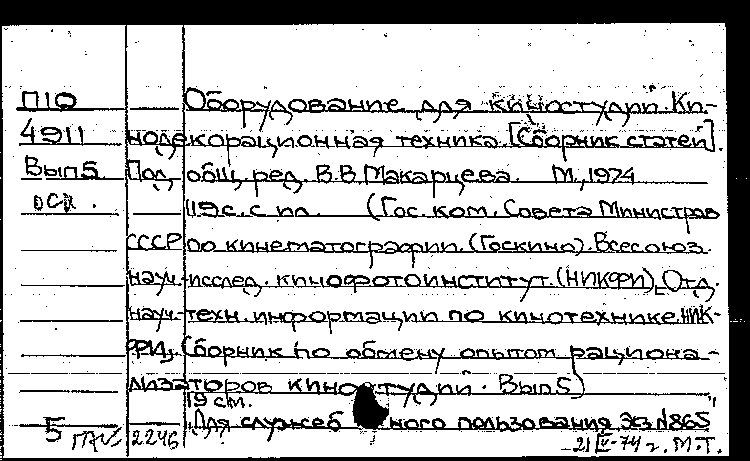 П10 Оборудование для киностудий. Ки-
4911 нодекорационная техника. [Сборник статей].
Вып5 Под общ. ред. В.В. Макарцева. М., 1974
119 с. с ил. (Гос. ком. Совета Министров
СССР по кинематографии. (Госкино). Всесоюз.
науч.-исслед. кинофотоинститут. (НИКФИ). Отд.
науч.-техн. информации по кинотехнике. НИК-
ФИ. Сборник по обмену опытом рациона-
лизаторов киностудий. Вып5)
19 см.
"Для служебного пользования" Экз №865
5 2246 21 V-74 г. М.Т.